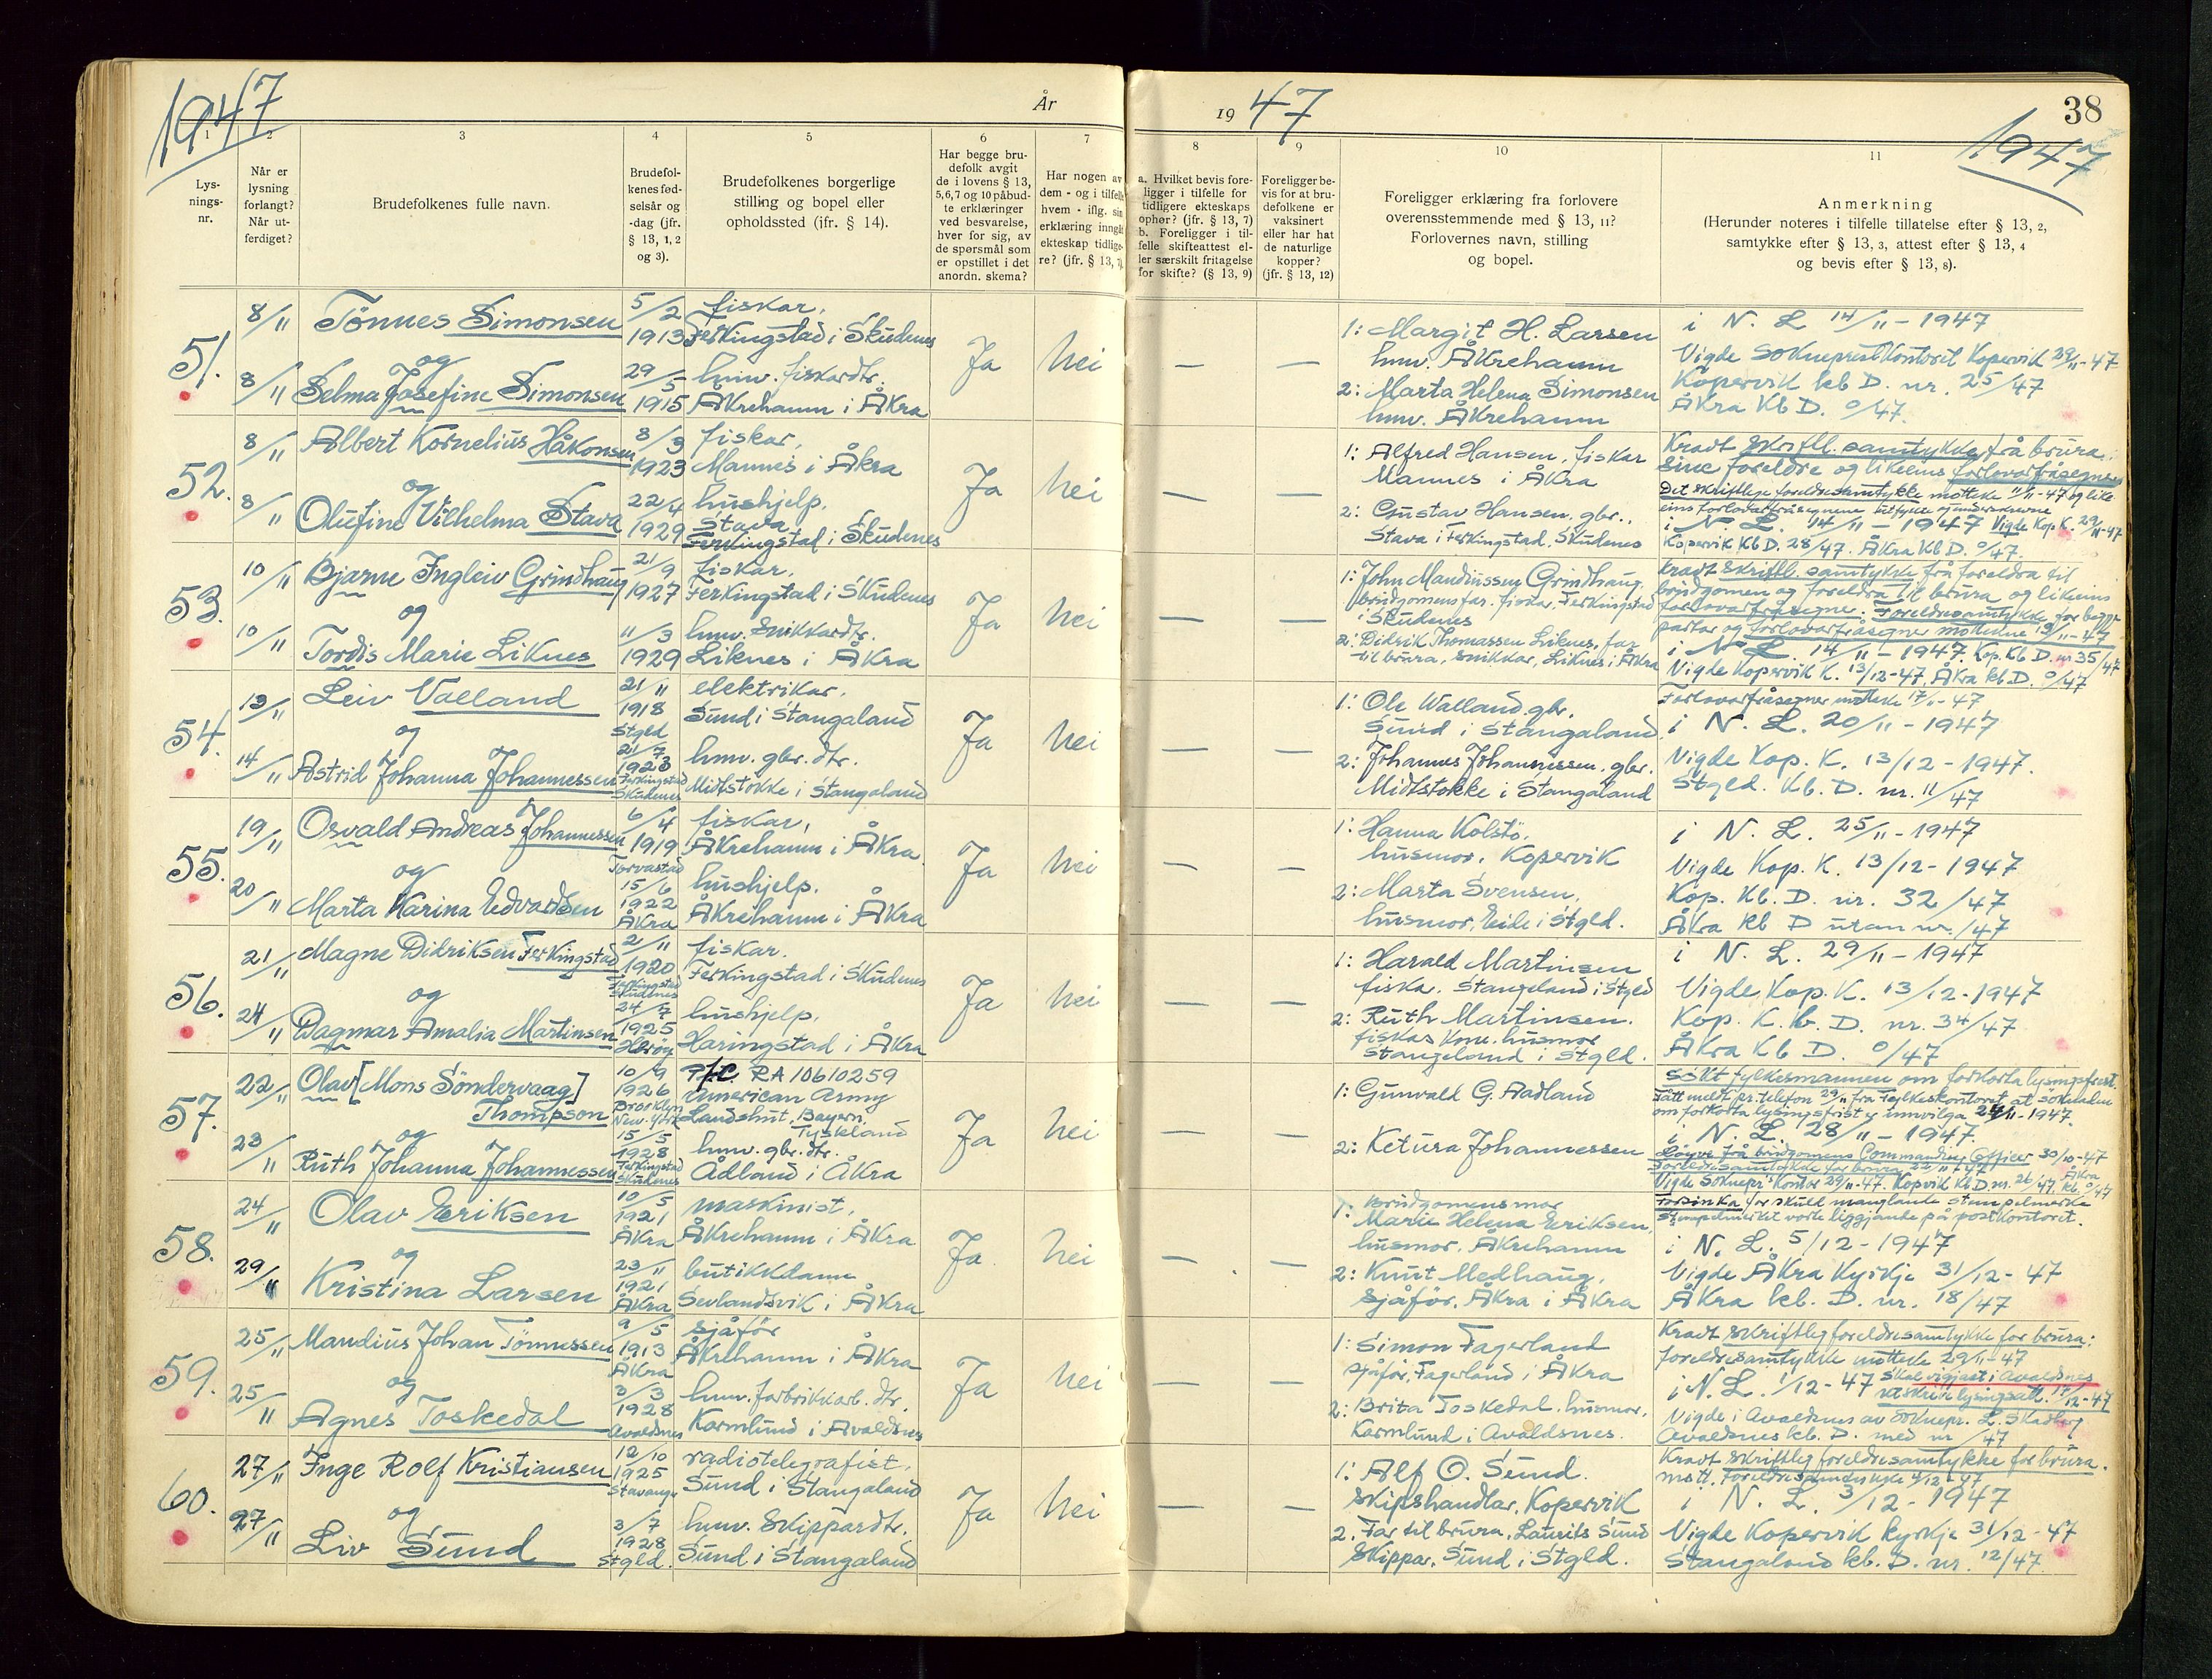 1947
År
19 47
38
1947
1
2
3
4
5
6
7
8
9
10
11
Lys-
nings-
nr.
Når er
lysning
forlangt?
Når ut-
ferdiget?
Brudefolkenes fulle navn.
Brudefol-
kenes fød-
selsår og
-dag (jfr.
§ 13, 1, 2
og 3).
Brudefolkenes borgerlige
stilling og bopel eller
opholdssted (ifr. § 14).
Har begge bru-
defolk avgit
de i lovens § 13,
5,6,7 og 10 påbud-
te erklæringer
ved besvarelse,
hver for sig, av
de spørsmål som
er opstillet i det
anordn. skema?
Har nogen av
dem - og i tilfelle
hvem - iflg. sin
erklæring inngått
ekteskap tidlige-
re? (jfr. § 13, 7)
a. Hvilket bevis fore-
ligger i tilfelle for
tidligere ekteskaps
ophør? (jfr. § 13, 7)
b. Foreligger i til-
felle skifteattest el-
ler særskilt fritagelse
for skifte? (§ 13, 9)
Foreligger be-
vis for at bru-
defolkene er
vaksinert
eller har hat
de naturlige
kopper?
(jfr. § 13, 12)
Foreligger erklæring fra forlovere
overensstemmende med § 13, 11?
Forlovernes navn, stilling
og bopel.
Anmerkning
(Herunder noteres i tilfelle tillatelse efter § 13, 2,
samtykke efter § 13, 3, attest efter § 13, 4
og bevis efter § 13, 8).
51.
8/11 Tönnes Simonsen
og
8/11 Selma Josefine Simonsen
5/2
1913
29/5
1915
fiskar,
Ferkingstad i Skudenes
hmv. fiskardtr.
Åkrehamn i Åkra
Ja
Nei
—
—
1: Margit H. Larsen
hmv. Åkrehamn
2: Marta Helena Simonsen
hmv. Åkrehamn
i N. L. 14/11 - 1947
Vigde Sokneprestkontoret Kopervik 29/11-47
Kopervik kb D. nr. 25/47
Åkra Kb D. 0/47.
52.
8/11 Albert Kornelius Håkonsen
og
8/11 Olufine Vilhelma Stava
8/9
1923
22/4
1929
fiskar,
Mannes i Åkra
hushjelp.
Stava
Ferkingstad i Skudenes
Ja
Nei
—
—
1: Alfred Hansen, fiskar
Mannes i Åkra
2: Gustav Hansen, gbr.,
Stava i Ferkingstad, Skudenes
Kravt skriftl. samtykke frå brura
sine foreldre og likeeins forlovarfråsegner
Det skriftlege foreldresamtykke motteke 11/11-47 og like
eins forlovarfråsegnene
i N. L. 14/11 - 1947 Vigde Kop. K. 29/11-47
Kopervik Kb D. 28/47. Åkra Kb D. 0/47.
53.
10/11 Bjarne Ingleiv Grindhaug
og
10/11 Tordis Marie Liknes
21/9
1927
11/3
1929
fiskar.
Ferkingstad i Skudenes
hmv. snikkardtr.
Liknes i Åkra
Ja
Nei
—
—
1: John Mandiussen Grindhaug,
brudgomens far. fiskar. Ferkingstad
i Skudenes
2: Didrik Thomassen Liknes, far
til brura, snikkar, Liknes i Åkra
Kravt skriftl. samtykke frå foreldra til
brudgomen og foreldra til brura og likeeins
forlovarfråsegne. Foreldresamtykke for begge
partar og forlovarfråsegner mottekne 12/11-47
i N. L. 14/11 - 1947. Kop. Kb D. nr 35/47
Vigde Kopervik K. 13/12-47. Åkra kb D. 0/47
54.
13/11 Leiv Valland
og
14/11 Astrid Johanna Johannessen
21/11
1918
Stgld
21/7
1923
Ferkingstad
Skudenes
elektrikar,
Sund i Stangaland
hmv. gbr. dtr.
Midtstokke i Stangaland
Ja
Nei
—
—
1: Ole Walland gbr.
Sund i Stangaland,
2: Johannes Johannessen, gbr.
Midtstokke i Stangaland
Forlovarfråsegner motteke 17/11-47
i N. L. 20/11 - 1947
Vigde Kop. K. 13/12 - 1947.
Stgld. Kb. D. nr. 11/47
55.
19/11 Osvald Andreas Johannessen
og
20/11 Marta Karina Edvardsen
6/4
1919
Torvastad
15/6
1922
Åkra
fiskar,
Åkrehamn i Åkra
hushjelp.
Åkrehamn i Åkra
Ja
Nei
—
—
1: Hanna Kolstö,
husmor, Kopervik
2: Marta Svensen,
husmor, Eide i Stgld.
i N. L. 25/11 - 1947
Vigde Kop. K. 13/12 - 1947
Kop. Kb. D. nr. 32/47
Åkra kb D utan nr. /47
56.
21/11 Magne Didriksen Ferkingstad
og
24/11 Dagmar Amalia Martinsen
2/11
1920
Ferkingstad
Skudenes
24/7
1925
Heröy
fiskar.
Ferkingstad i Skudenes
hushjelp.
Haringstad i Åkra
Ja
Nei
—
—
1: Harald Martinsen
fiskar. Stangeland i Stgld
2: Ruth Martinsen.
fiskarkone. husmor
Stangeland i Stgld.
i N. L. 29/11 - 1947
Vigde Kop. K. 13/12-1947
Kop. K. b. D. nr. 34/47
Åkra Kb D. 0/47
57.
22/11 Olav [Mons Söndervaag]
Thompson
og
23/11 Ruth Johanna Johannessen
10/9
1926
Brooklyn
New. York
15/5
1928
Ferkingstad
Skudenes
Pfc. RA 10610259
American Army
Landshut, Bayern,
Tyskland
hmv. gbr. dtr.
Ådland i Åkra
Ja
Nei
—
—
1: Gunvald G. Aadland
2: Ketura Johannessen
Sökt fylkesmannen om forkorta lysingsfrest.
Fått meldt pr. telefon 29/11 frå Fylkeskontoret at söknaden
om forkorta lysingsfrist er innvilga 29/11-1947.
i N. L. 28/11 - 1947.
Löyve frå brudgomens Commanding Officer 30/10-47
Foreldresamtykke for brura 22/11-47
Vigde Soknepr.'s Kontor 29/11-47. Kopvik Kb D. nr. 26/47. Åkra kb. 0/47
58.
24/11 Olav Eriksen
og
29/11 Kristina Larsen
10/5
1921
Åkra
23/11
1921
Åkra
maskinist,
Åkrehamn i Åkra
butikkdame
Sevlandsvik i Åkra
Ja
Nei
—
—
1: Brudgomens mor
Marie Helena Eriksen,
husmor, Åkrehamn
2: Knut Medhaug,
sjåför, Åkra i Åkra
Forsinka for skuld manglande stempelmerke
Stempelmerket vorte liggjande på postkontoret.
i N. L. 5/12 - 1947
Vigde Åkra Kyrkje 31/12 - 47
Åkra kb. D. nr. 18/47
59.
25/11 Mandius Johan Tönnessen
og
25/11 Agnes Toskedal
9/5
1913
Åkra
3/3
1928
Avaldsnes
sjåför
Åkrehamn i Åkra
hmv. fabrikkarb. dtr.
Karmlund i Avaldsnes
Ja
Nei
—
—
1: Simon Fagerland
sjåför, Fagerland i Åkra
2: Brita Toskedal. husmor,
Karmlund i Avaldsnes.
Kravt skriftleg foreldresamtykke for brura:
foreldresamtykke motteke 29/11-47
i N. L. 1/12-47 Skal vigjast i Avaldsnes
utskrive lysingsatt. 17/12-47
Vigde i Avaldsnes av Soknepr. L. Skadberg
Avaldsnes kb. D. med nr /47
60.
27/11 Inge Rolf Kristiansen
og
27/11 Liv Sund
12/10
1925
Stavanger
3/7
1928
Stgld.
radiotelegrafist,
Sund i Stangaland
hmv. Skippardtr.
Sund i Stangaland
Ja
Nei
—
—
1: Alf O. Sund.
Skipshandlar, Kopervik
2. Far til brura, Laurits Sund
Skippar, Sund i Stgld.
Kravt skriftleg foreldresamtykke for brura.
mott. Foreldresamtykke 4/12-47
i N. L. 3/12 - 1947
Vigde Kopervik kyrkje 31/12-47
Stangaland kb. D. nr. 12/47